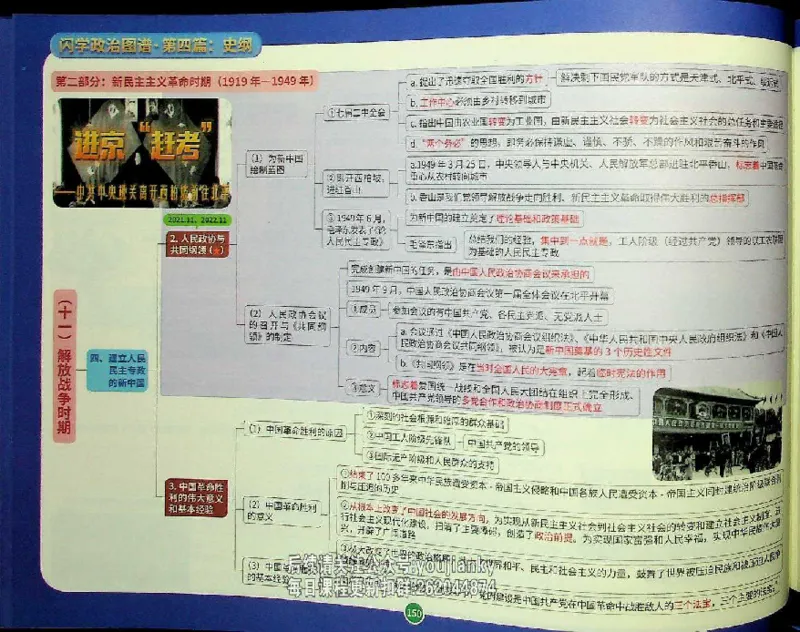 闪学政治图谱·第四篇：史纲
第二部分：新民主主义革命时期（1919年—1949年）
进京“赶考”
——中共中央机关离开西柏坡前往北
2021.11、2022.11
（十一）解放战争时期
四、建立人民
民主专政
的新中国
2. 人民政协与
共同纲领（★）
（1）为新中国
绘制蓝图
①七届二中全会
a. 提出了迅速夺取全国胜利的方针
解决剩下国民党军队的方式是天津式、北平式、绥远式
b. 工作中心必须由乡村转移到城市
c. 指出中国由农业国转变为工业国，由新民主主义社会转变为社会主义社会的总任务和主要途径
d. “两个务必”的思想，即务必保持谦虚、谨慎、不骄、不躁的作风和艰苦奋斗的作风
②离开西柏坡，
进驻香山
a.1949年3月25日，中央领导人与中央机关、人民解放军总部进驻北平香山，标志着中国革命
重心从农村转向城市
b. 香山是我们党领导解放战争走向胜利、新民主主义革命取得伟大胜利的总指挥部
③1949年6月，
毛泽东发表了《论
人民民主专政》
为新中国的建立奠定了理论基础和政策基础
毛泽东指出
总结我们的经验，集中到一点就是，工人阶级（经过共产党）领导的以工农联盟
为基础的人民民主专政
（2）人民政协会议
的召开与《共同纲
领》的制定
完成创建新中国的任务，是由中国人民政治协商会议来承担的
1949年9月，中国人民政治协商会议第一届全体会议在北平开幕
①成员
参加会议的有中国共产党、各民主党派、无党派人士
②内容
a. 会议通过《中国人民政治协商会议组织法》、《中华人民共和国中央人民政府组织法》和《中国人
民政治协商会议共同纲领》，被认为是新中国奠基的3个历史性文件
b. 《共同纲领》是在当时全国人民的大宪章，起着临时宪法的作用
③意义
标志着爱国统一战线和全国人民大团结在组织上完全形成、
中国共产党领导的多党合作和政治协商制度正式确立
3. 中国革命胜
利的伟大意义
和基本经验
（1）中国革命胜利的原因
①深刻的社会根源和雄厚的群众基础
②中国工人阶级先锋队
中国共产党的领导
③国际无产阶级和人民群众的支持
（2）中国革命胜利
的意义
①结束了100多年来中华民族遭受资本-帝国主义侵略和中国各族人民遭受资本-帝国主义同封建统治阶级联合
剥削与压迫的历史
②从根本上改变了中国社会的发展方向，为实现从新民主主义社会到社会主义社会的转变和建立社会主义制度、进
行社会主义现代化建设，扫清了主要障碍，创造了政治前提，为实现国家富强和人民幸福，实现中华民族伟大复
兴，开辟了广阔道路
③极大改变了世界的政治格局
世界和平、民主和社会主义的力量，鼓舞了世界被压迫民族和被压迫人民
（3）中国革命胜利
的基本经验
党的建设是中国共产党在中国革命中战胜敌人的三个法宝，三个主要的法宝。
后续请关注公众号:youjianky
每日课程更新群:262044874
150